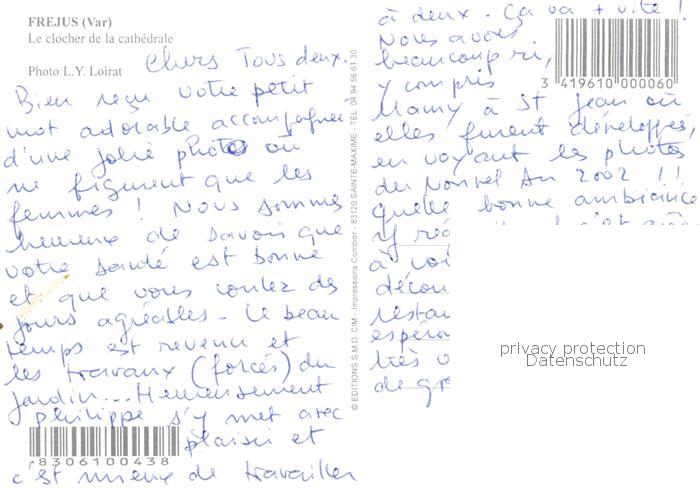 FREJUS (Var)
Le clocher de la cathédrale
Photo L.Y. Loirat
Chers Tous deux.
Bien reçu votre petit
mot adorable accompagné
d'une jolie photo où
ne figurent que les
femmes ! Nous sommes
heureux de savoir que
votre santé est bonne
et que vous coulez des
jours agréables - Le beau
temps est revenu et
les travaux (forcés) du
jardin... Heureusement
Philippe s'y met avec
plaisir et
c'est mieux de travailler
83061004 38
© EDITIONS S.M.D. CIM - Impressions Combier - 83120 SAINTE-MAXIME - TÉL. 04 94 56 61 30
à deux. Ça va + vite !
Nous avons
beaucoup ri,
y compris
Mamy à St Jean où
elles furent développées,
en voyant les photos
du Nouvel An 2002 !!
quelle bonne ambiance
à voi
décou
restau
espéro
très
de gr
3 419610 000060
privacy protection
Datenschutz